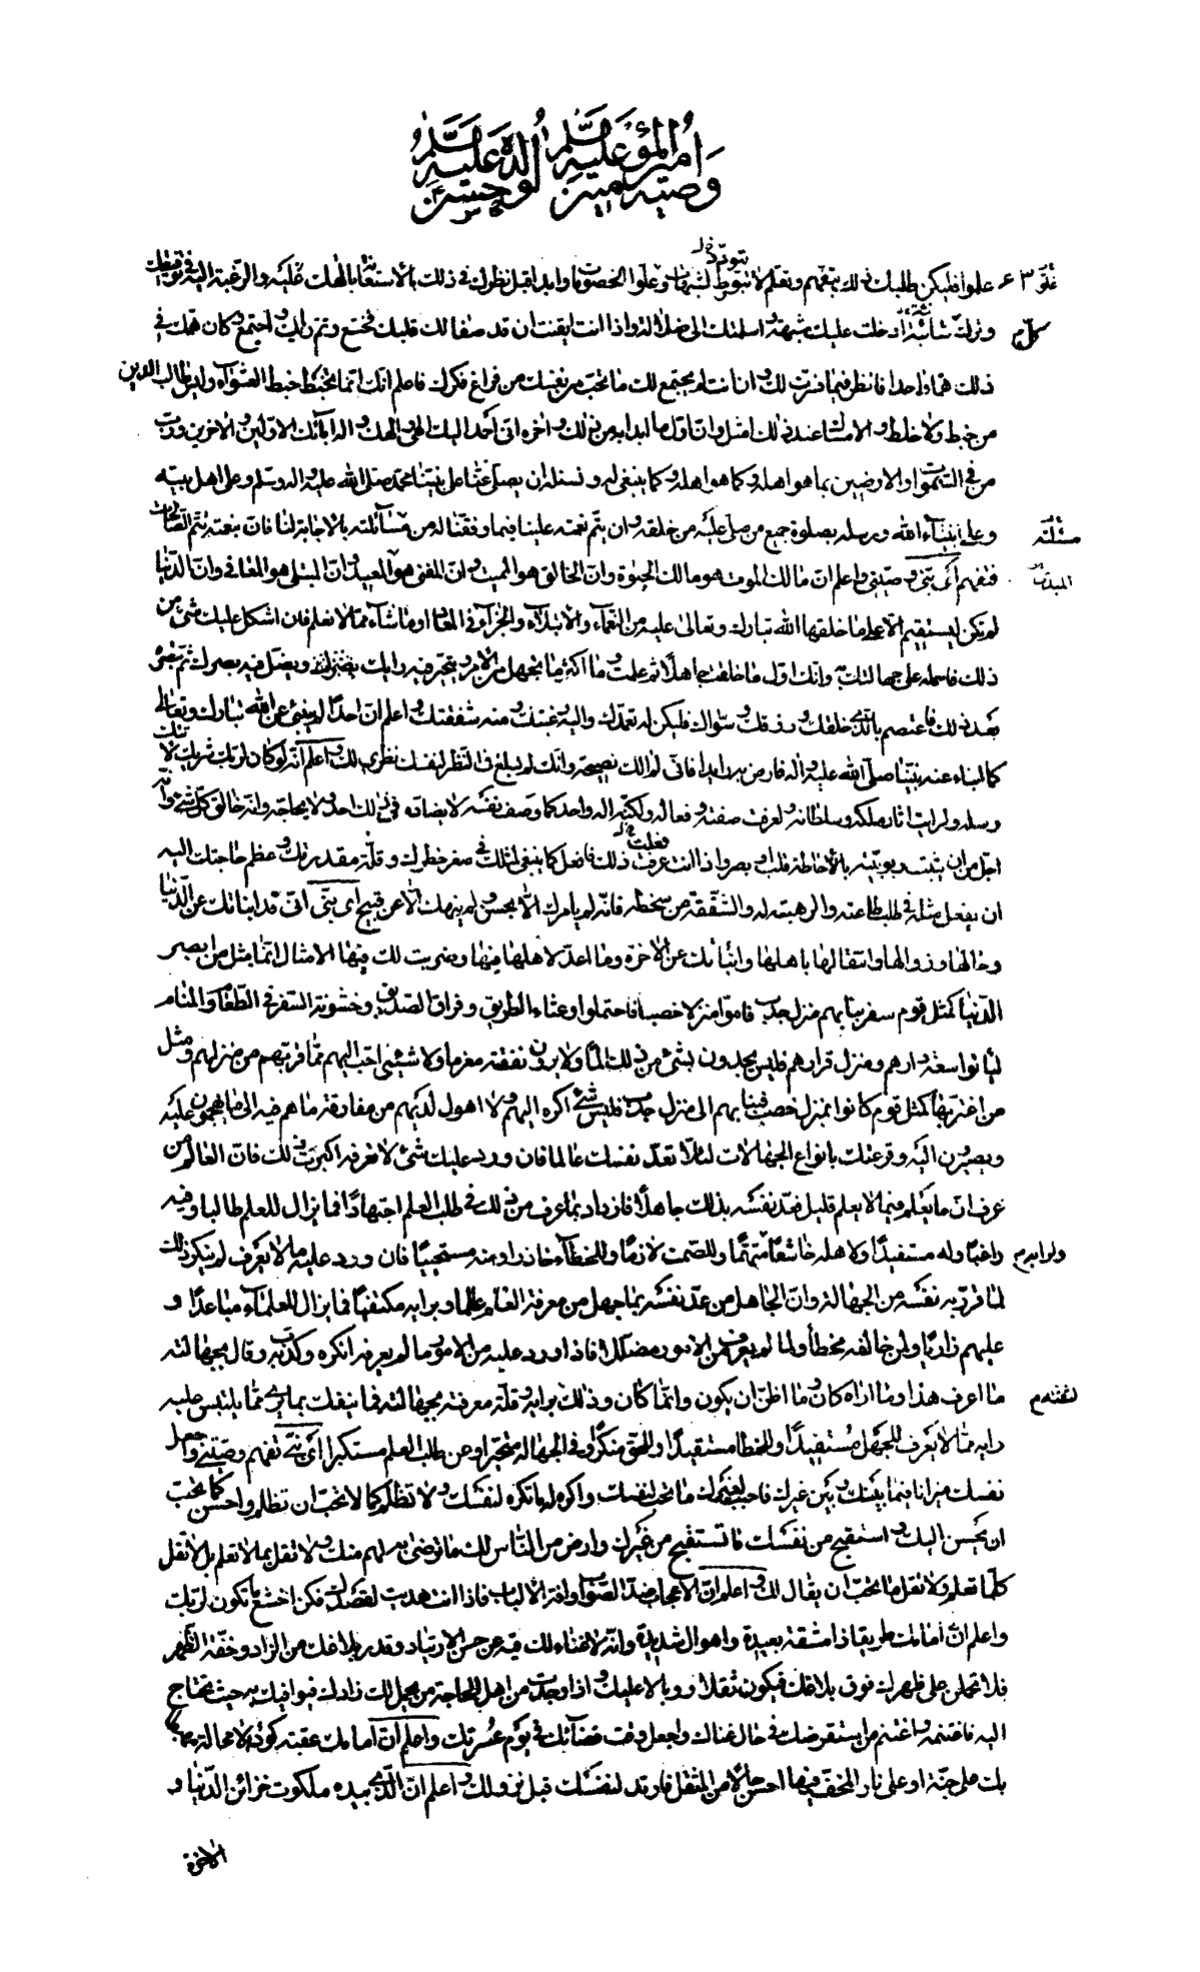 وصية أمير المؤمنين عليه السلم لولده عليه السلم
علموا فليكن طلبك ذلك بتفهم وتعلم لا بتورط الشبهات وعلو الخصومات وابدا قبل نظرك في ذلك بالاستعانة بالهك عليه والرغبة اليه في توفيقك
وترك كل شائبة ادخلت عليك شبهة او اسلمتك الى ضلالة واذا انت ايقنت ان قد صفا لك قلبك فخشع وتم رايك واجتمع وكان همك في
ذلك هما واحدا فانظر فيما فسرت لك وان انت لم يجتمع لك ما تحب من نفسك من فراغ فكرك فاعلم انك انما تخبط خبط العشواء وليس طالب الدين
من خبط ولا خلط والامساك عند ذلك امثل وان اول ما ابداك به من ذلك واخره انى احمد اليك الهى والهك واله ابائك الاولين والاخرين ورب
من في السموات والارضين بما هو اهله وكما هو اهله وكما ينبغى له ونسئله ان يصلى عنا على نبينا محمد صلى الله عليه واله وسلم وعلى اهل بيته
وعلى انبياء الله ورسله بصلوة جميع من صلى عليه من خلقه وان يتم نعمته علينا فيما وفقنا له من مسائلته بالاجابة لنا فان بنعمته تتم الصالحات
فتفهم اى بنى وصيتى واعلم ان مالك الموت هو مالك الحيوة وان الخالق هو المميت وان المفنى هو المعيد وان المبتلى هو المعافى وان الدنيا
لم تكن لتستقيم الا على ما خلقها الله تبارك وتعالى عليه من النعماء والابتلاء والجزاء في المعاد او ما شاء مما لا نعلم فان اشكل عليك شئ من
ذلك فاحمله على جهالتك به وانك اول ما خلقت جاهلا ثم علمت وما اكثر ما تجهل من الامر ويتحير فيه رايك ويضل فيه بصرك ثم تبصره
بعد ذلك فاعتصم بالذى خلقك ورزقك وسواك فليكن له تعبدك واليه رغبتك ومنه شفقتك واعلم ان احدا لم ينبئ عن الله تبارك وتعالى
كما انباء عنه نبينا صلى الله عليه واله فارض به رايدا فانى لم الك نصيحة وانك لم تبلغ في النظر لنفسك نظرى لك واعلم انه لو كان لربك شريك لاتتك
رسله ولرايت اثار ملكه وسلطانه ولعرفت صفته وفعاله ولكنه اله واحد كما وصف نفسه لا يضاده في ذلك احد ولا يحاجه وانه خالق كل شئ وانه
اجل من ان يثبت ربوبيته بالاحاطة قلب او بصر واذا انت عرفت ذلك فافعل كما ينبغى لمثلك في صغر خطرك وقلة مقدرتك وعظم حاجتك اليه
ان يفعل مثله في طلب طاعته والرهبة له والشفقة من سخطه فانه لم يامرك الا بحسن ولم ينهك الا عن قبيح اى بنى انى قد انباتك عن الدنيا
وحالها وزوالها وانتقالها باهلها وانباتك عن الاخرة وما اعد لاهلها فيها وضربت لك فيها الامثال انما مثل من ابصر
الدنيا كمثل قوم سفر نبا بهم منزل جدب فاموا منزلا خصيبا فاحتملوا وعثاء الطريق وفراق الصديق وخشونة السفر في الطعام والمنام
لياتوا سعة دارهم ومنزل قرارهم فليس يجدون لشئ من ذلك الما ولا يرون نفقته مغرما ولا شيئا احب اليهم مما قربهم من منزلهم ومثل
من اغتر بها كمثل قوم كانوا بمنزل خصيب فنبا بهم الى منزل جدب فليس شئ اكره اليهم ولا اهول لديهم من مفارقة ما هم فيه الى ما يهجمون عليه
ويصيرون اليه وقرعتك بانواع الجهالات لئلا تعد نفسك عالما فان ورد عليك شئ لا تعرفه اكبرت ذلك فان العالم من
عرف ان ما يعلم فيما لا يعلم قليل فعد نفسه بذلك جاهلا فازداد بما عرف من ذلك في طلب العلم اجتهادا فما يزال للعلم طالبا وفيه
راغبا وله مستفيدا ولاهله خاشعا متهما وللصمت لازما وللخطاء حاذرا ومنه مستحييا فان ورد عليه ما لا يعرف لم ينكر ذلك
لما قرر به نفسه من الجهالة وان الجاهل من عد نفسه بما جهل من معرفة العلم عالما وبرايه مكتفيا فما يزال للعلماء مباعدا و
عليهم زاريا ولمن خالفه مخطأ ولما لم يعرف من الامور مضللا فاذا ورد عليه من الامور ما لم يعرفه انكره وكذب به وقال بجهالته
ما اعرف هذا وما اراه كان وما اظن ان يكون وانى كان وذلك لثقته برايه وقلة معرفته بجهالته فما ينفك بما يرى مما يلتبس عليه
رايه مما لا يعرف للجهل مستفيدا وللحق منكرا وفي الجهالة متحيرا وعن طلب العلم مستكبرا اى بنى تفهم وصيتى واجعل
نفسك ميزانا فيما بينك وبين غيرك فاحبب لغيرك ما تحب لنفسك واكره له ما تكره لنفسك ولا تظلم كما لا تحب ان تظلم واحسن كما تحب
ان يحسن اليك واستقبح من نفسك ما تستقبح من غيرك وارض من الناس لك ما ترضى به لهم منك ولا تقل بما لا تعلم بل لا تقل
كلما تعلم ولا تقل ما لا تحب ان يقال لك واعلم ان الاعجاب ضد الصواب وافة الالباب فاذا انت هديت لقصدك فكن اخشع ما تكون لربك
واعلم ان امامك طريقا ذا مشقة بعيدة واهوال شديدة وانه لا غناء لك فيه عن حسن الارتياد وقدر بلاغك من الزاد وخفة الظهر
فلا تحملن على ظهرك فوق بلاغك فيكون ثقلا ووبالا عليك واذا وجدت من اهل الحاجة من يحمل لك زادك فيوافيك به حيث تحتاج
اليه فاغتنمه واغتنم من استقرضك في حال غناك واجعل وقت قضائك في يوم عسرتك واعلم ان امامك عقبة كؤدا لا محالة مهبطا
بك على جنة او على نار المخف فيها احسن حالا من المثقل فارتد لنفسك قبل نزولك واعلم ان الذى بيده ملكوت خزائن الدنيا و
الاخرة